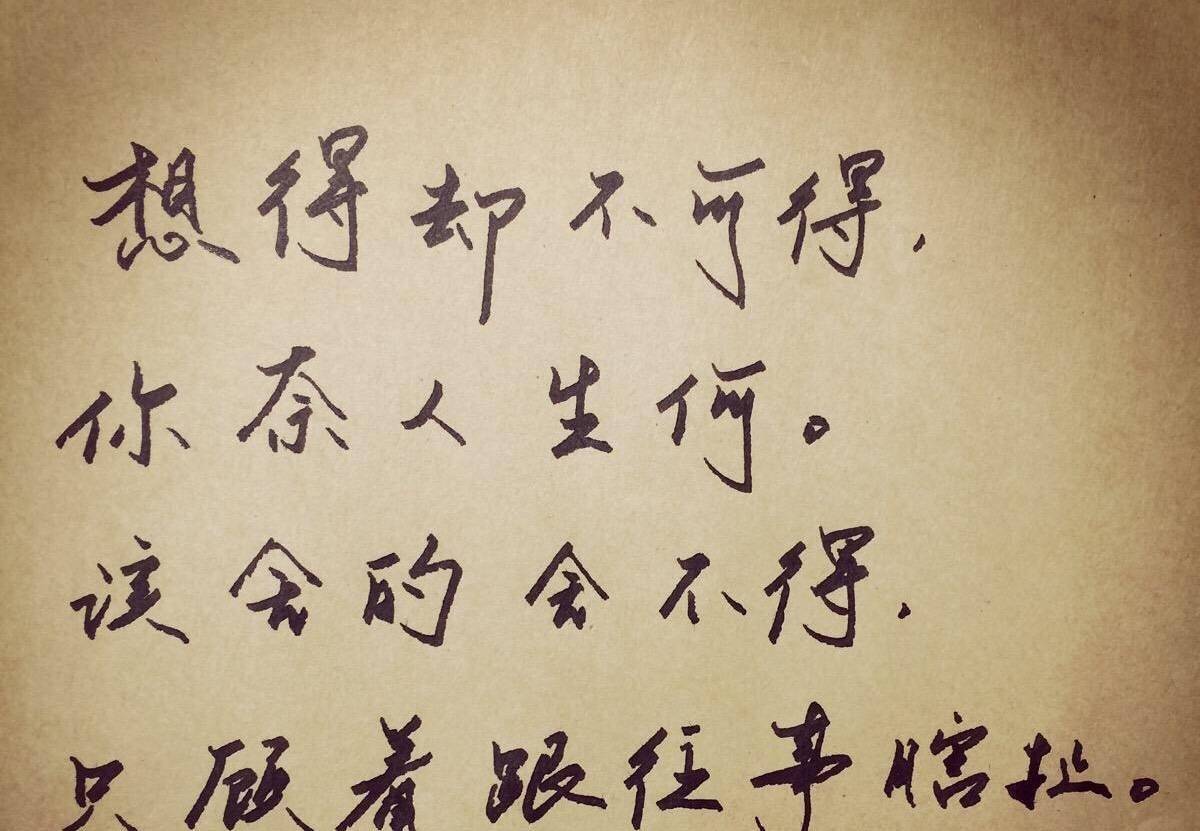 想得却不可得，
你奈人生何。
该舍的舍不得，
只顾着跟往事瞎扯。